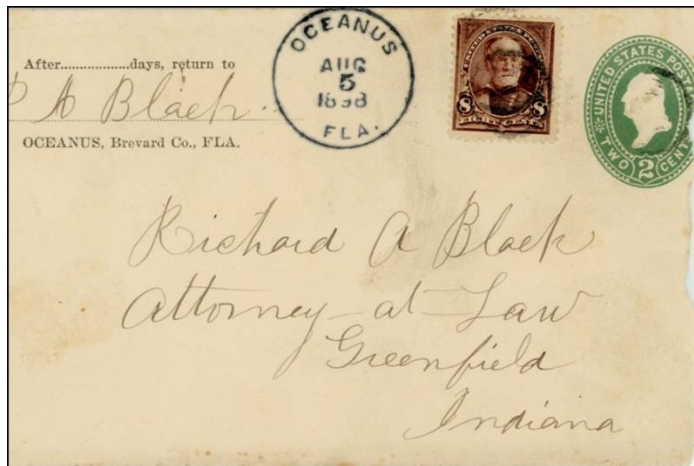 After.................days, return to
P A Black.
OCEANUS, Brevard Co., FLA.
OCEANUS
AUG
5
1898
FLA.
8 8
EIGHT CENTS
UNITED STATES POSTAGE
TWO 2 CENTS
Richard A Black
Attorney-at-Law
Greenfield
Indiana